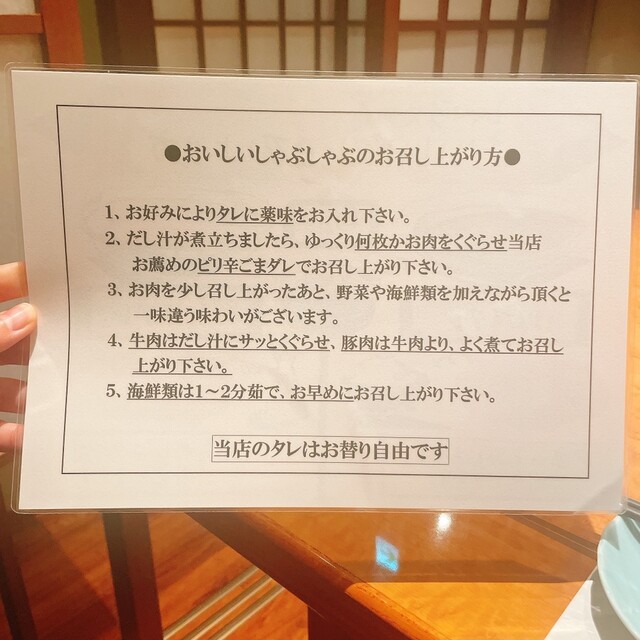 ●おいしいしゃぶしゃぶのお召し上がり方●
1、お好みによりタレに薬味をお入れ下さい。
2、だし汁が煮立ちましたら、ゆっくり何枚かお肉をくぐらせ当店
お薦めのピリ辛ごまダレでお召し上がり下さい。
3、お肉を少し召し上がったあと、野菜や海鮮類を加えながら頂くと
一味違う味わいがございます。
4、牛肉はだし汁にサッとくぐらせ、豚肉は牛肉より、よく煮てお召し
上がり下さい。
5、海鮮類は1～2分茹で、お早めにお召し上がり下さい。
当店のタレはお替り自由です